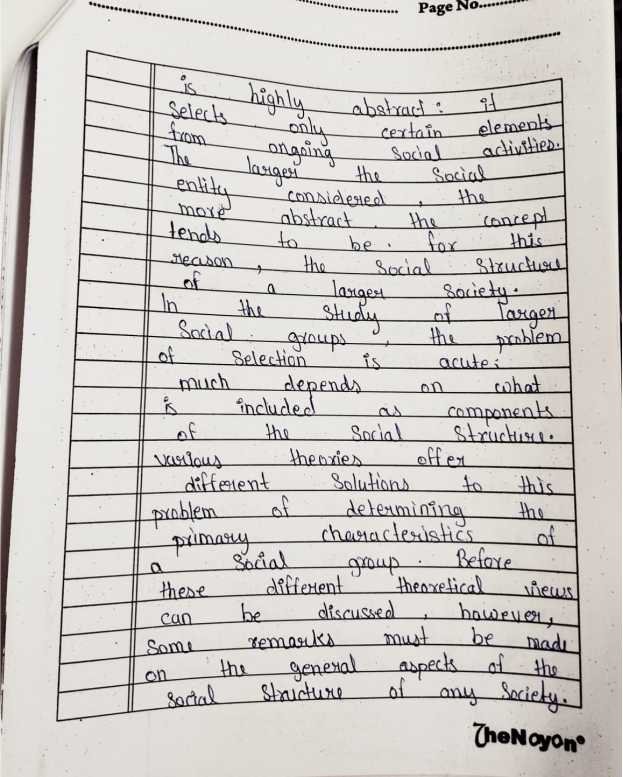 Page No.
is highly abstract : it
Selects only certain elements
from ongoing Social activities.
The larger the Social
entity considered , the
more abstract . the concept
tends to be . for this
reason , the Social Structure
of a larger Society.
In the Study of larger
Social groups , the problem
of Selection is acute:
much depends on what
is included as components
of the Social Structure.
various theories offer
different Solutions to this
problem of determining the
primary characteristics of
a Social group . Before
these different theoretical views
can be discussed , however,
Some remarks must be made
on the general aspects of the
Social Structure of any Society.
TheNoyon